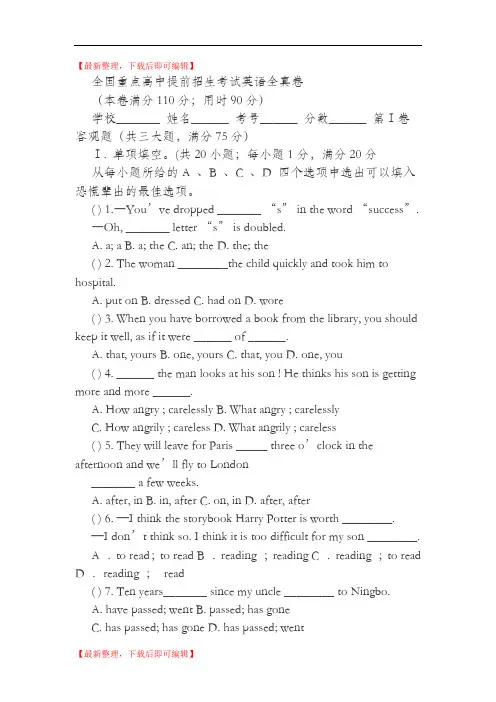 【最新整理，下载后即可编辑】
全国重点高中提前招生考试英语全真卷
（本卷满分110分；用时90分）
学校_______ 姓名______ 考号______ 分数______ 第Ⅰ卷
客观题（共三大题，满分75分）
Ⅰ. 单项填空。(共20小题；每小题1分，满分20分
从每小题所给的 A 、B 、C 、D 四个选项中选出可以填入
恐慌辈出的最佳选项。
( ) 1.—You’ve dropped _______ “s” in the word “success”.
—Oh, _______ letter “s” is doubled.
A. a; a B. a; the C. an; the D. the; the
( ) 2. The woman ________the child quickly and took him to
hospital.
A. put on B. dressed C. had on D. wore
( ) 3. When you have borrowed a book from the library, you should
keep it well, as if it were ______ of ______.
A. that, yours B. one, yours C. that, you D. one, you
( ) 4. ______ the man looks at his son ! He thinks his son is getting
more and more ______.
A. How angry ; carelessly B. What angry ; carelessly
C. How angrily ; careless D. What angrily ; careless
( ) 5. They will leave for Paris _____ three o’clock in the
afternoon and we’ll fly to London
_______ a few weeks.
A. after, in B. in, after C. on, in D. after, after
( ) 6. —I think the storybook Harry Potter is worth ________.
—I don’t think so. I think it is too difficult for my son ________.
A ．to read ; to read B ．reading ；reading C ．reading ；to read
D ．reading ； read
( ) 7. Ten years_______ since my uncle ________ to Ningbo.
A. have passed; went B. passed; has gone
C. has passed; has gone D. has passed; went
【最新整理，下载后即可编辑】